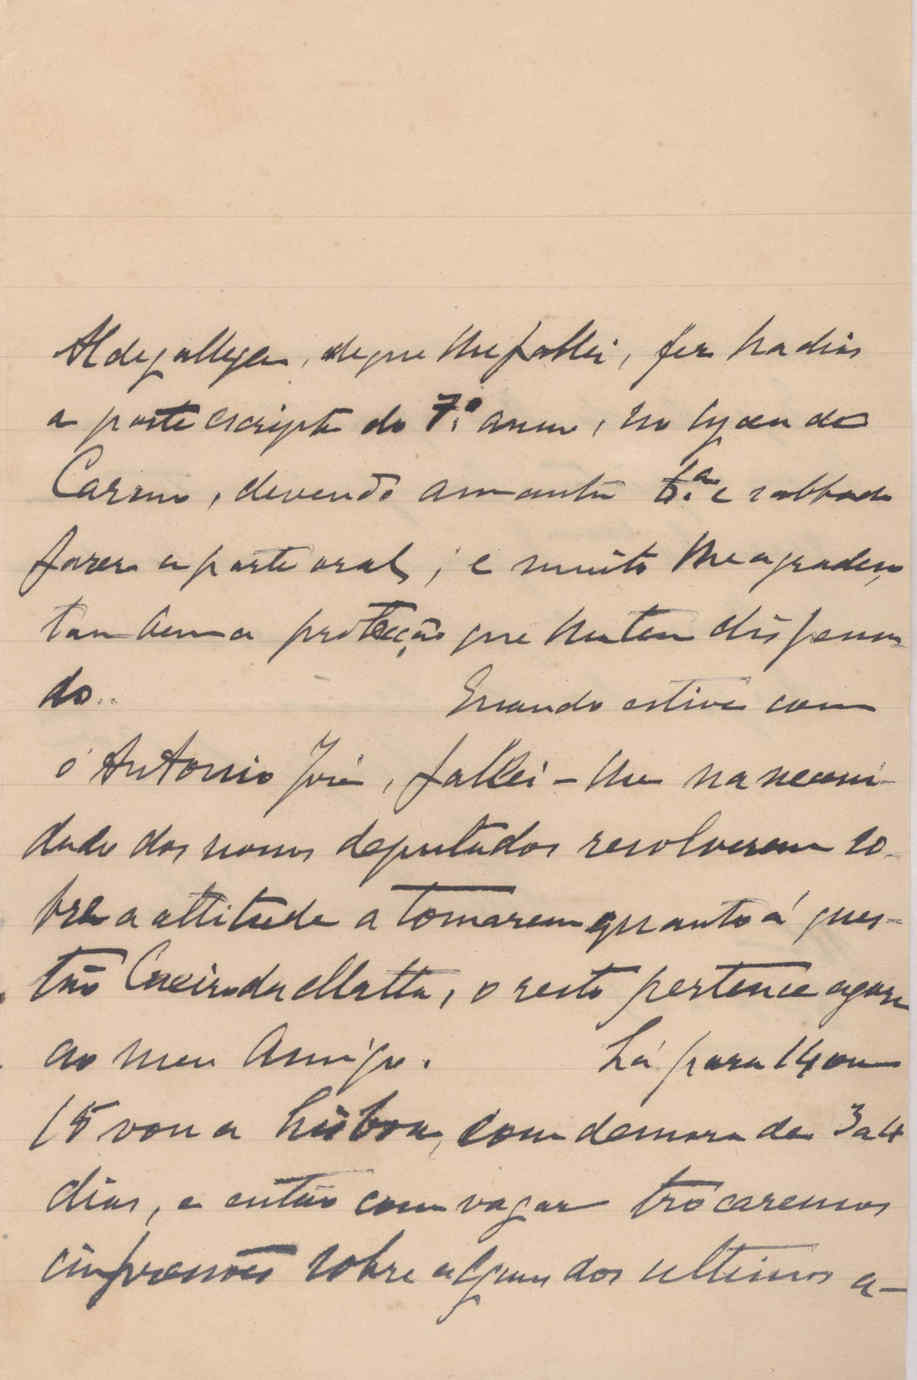 Aldegallega, de que lhe fallei, fez ha dias
a parte escripta do 7.º anno, no lyceu do
Carmo, devendo amanhã 6.ª e sabbado
fazer a parte oral; e muito lhe agradeço
tambem a protecção que lhe tem dispensa-
do.. Quando estive com
o Antonio José, fallei-lhe na necessi-
dade dos nossos deputados resolverem so-
bre a attitude a tomarem quanto á ques-
tão Caeiro da Matta, o resto pertence agora
ao meu Amigo. Lá para 14 ou
15 vou a Lisboa, com demora de 3 a 4
dias, e então com vagar trocaremos
impressões sobre alguns dos ultimos a-